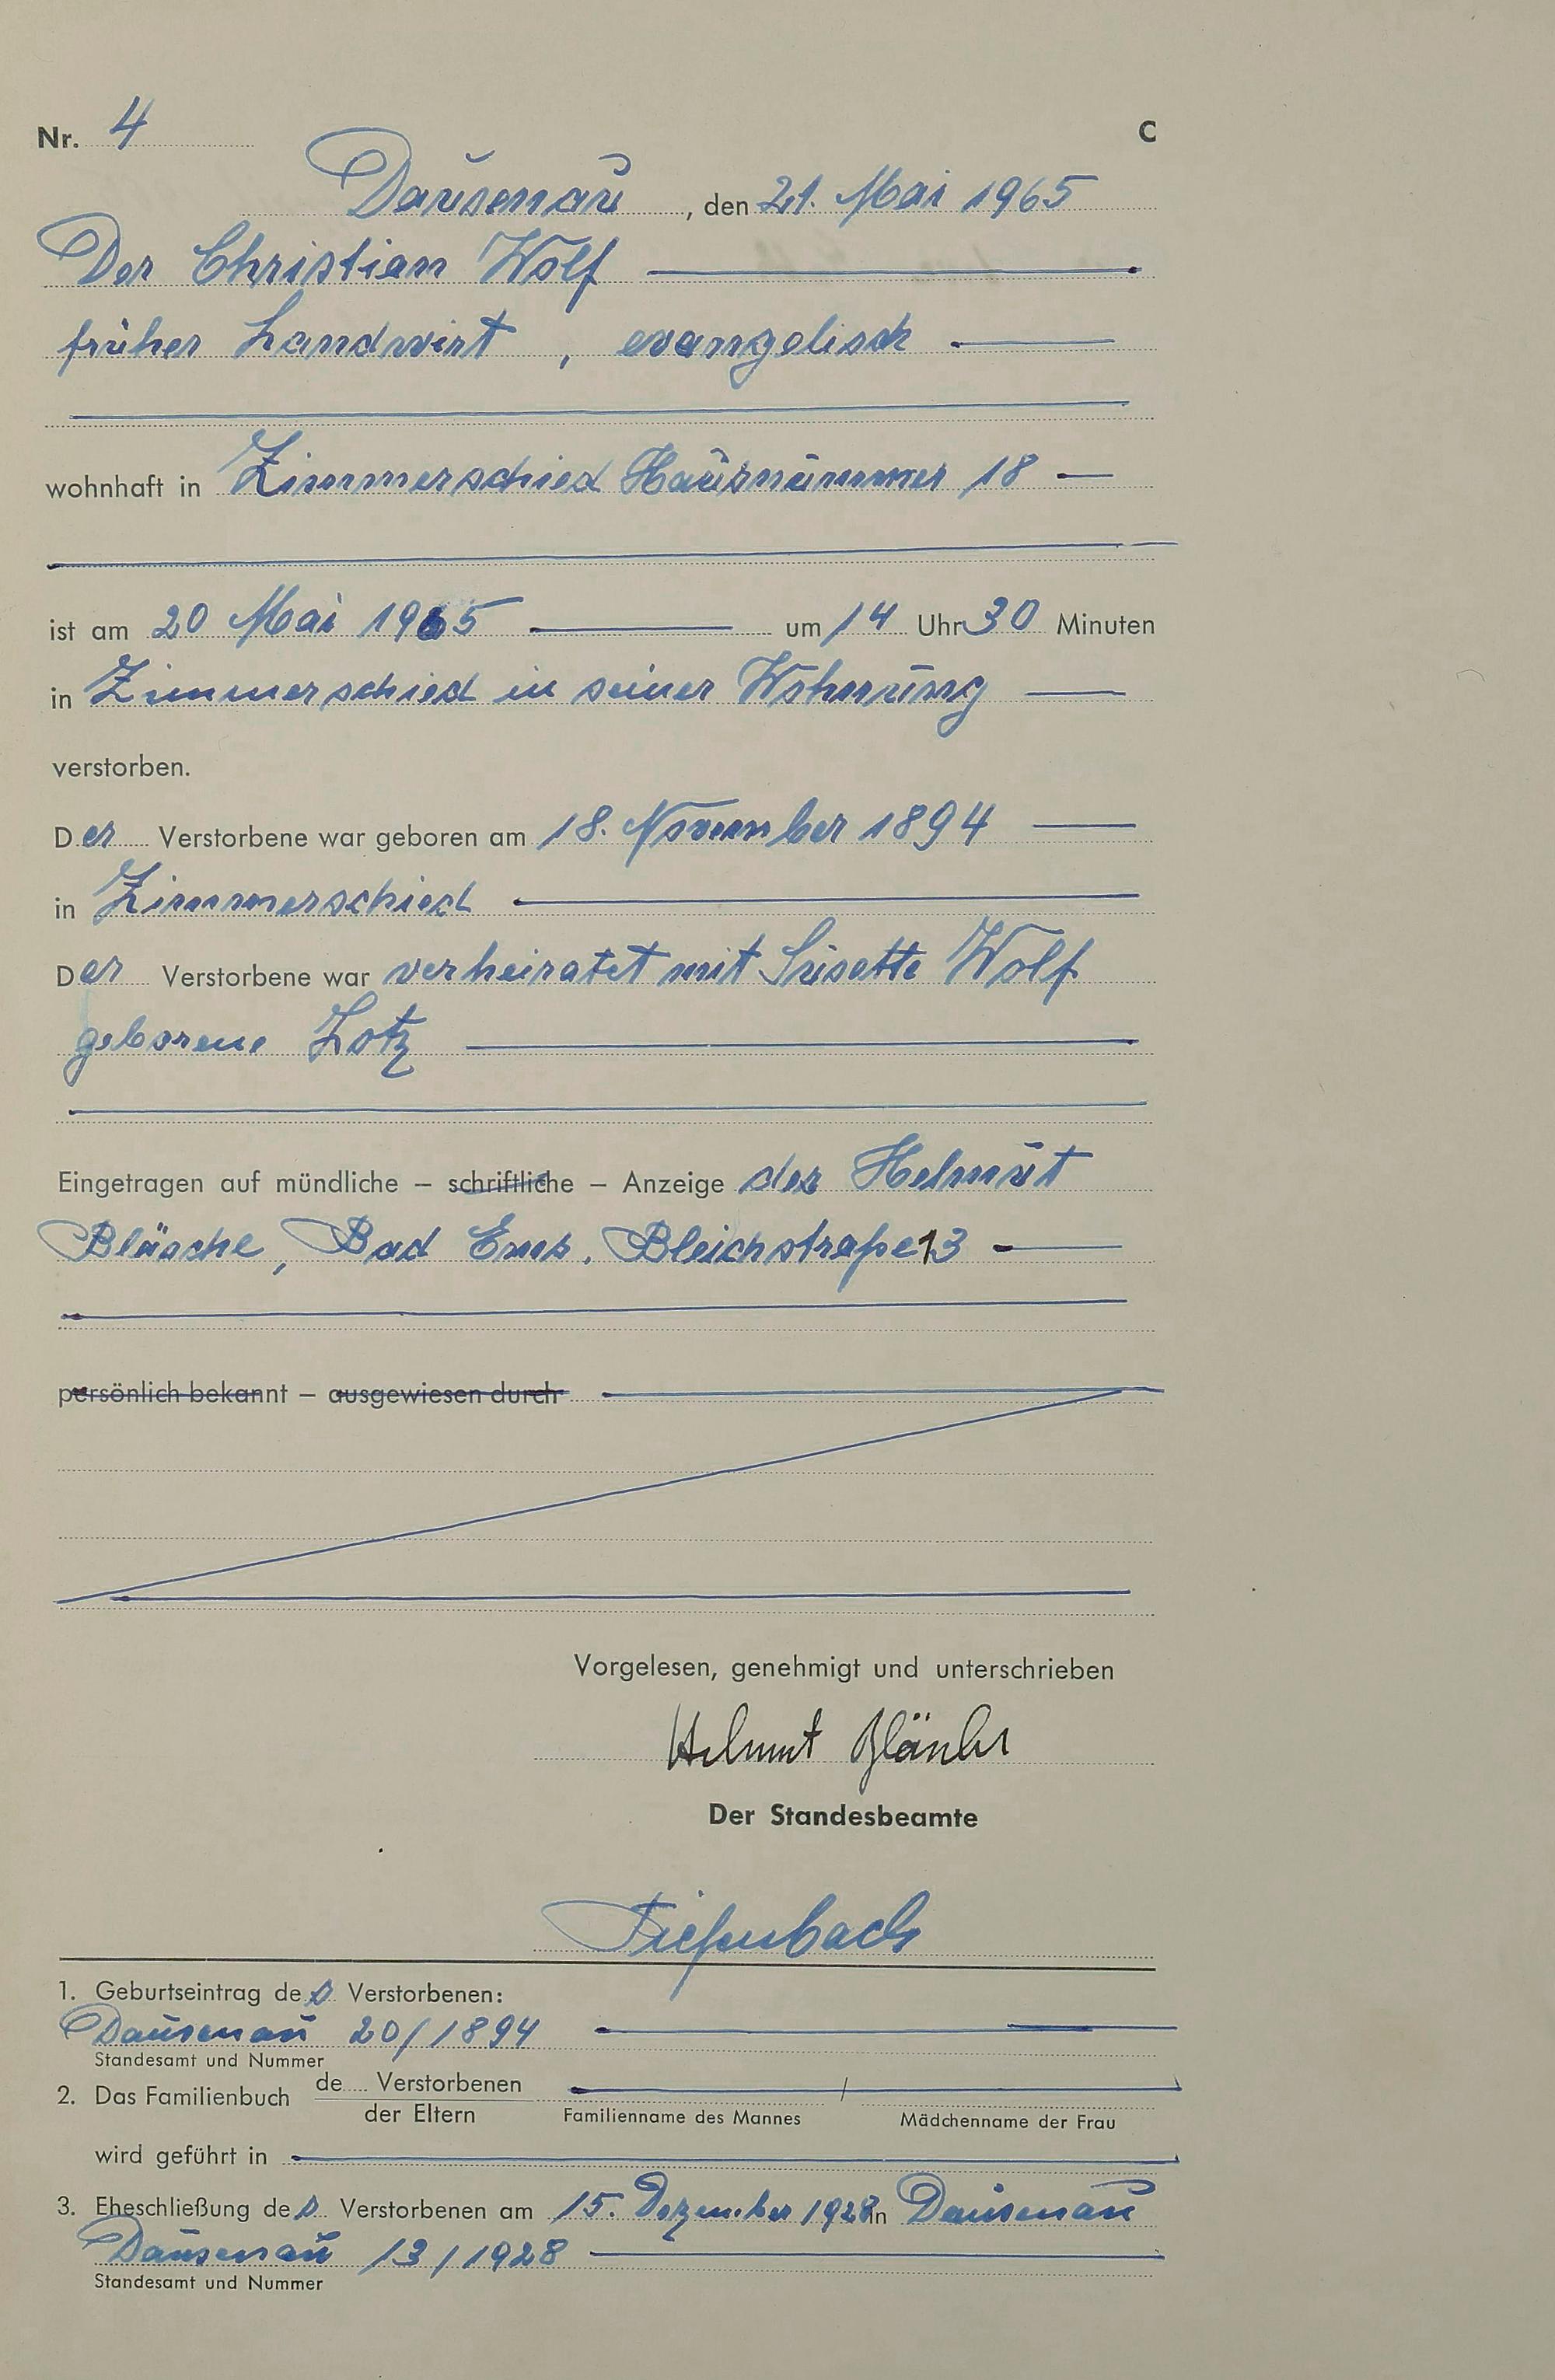 Nr. 4 C
Dausenau, den 21. Mai 1965
Der Christian Wolf
früher Landwirt, evangelisch
wohnhaft in Zimmerschied Hausnummer 18
ist am 20 Mai 1965 um 14 Uhr 30 Minuten
in Zimmerschied in seiner Wohnung
verstorben.
Der Verstorbene war geboren am 18. November 1894
in Zimmerschied
Der Verstorbene war verheiratet mit Susette Wolf
geborene Lotz
Eingetragen auf mündliche – schriftliche – Anzeige des Helmut
Bläsche, Bad Ems, Bleichstraße 13
persönlich bekannt – ausgewiesen durch
Vorgelesen, genehmigt und unterschrieben
Helmut
Der Standesbeamte
Tiefenbach
1. Geburtseintrag des Verstorbenen:
Dausenau 20/1894
Standesamt und Nummer
2. Das Familienbuch de Verstorbenen
der Eltern Familienname des Mannes Mädchenname der Frau
wird geführt in
3. Eheschließung des Verstorbenen am 15. Dezember 1928 in Dausenau
Dausenau 13/1928
Standesamt und Nummer